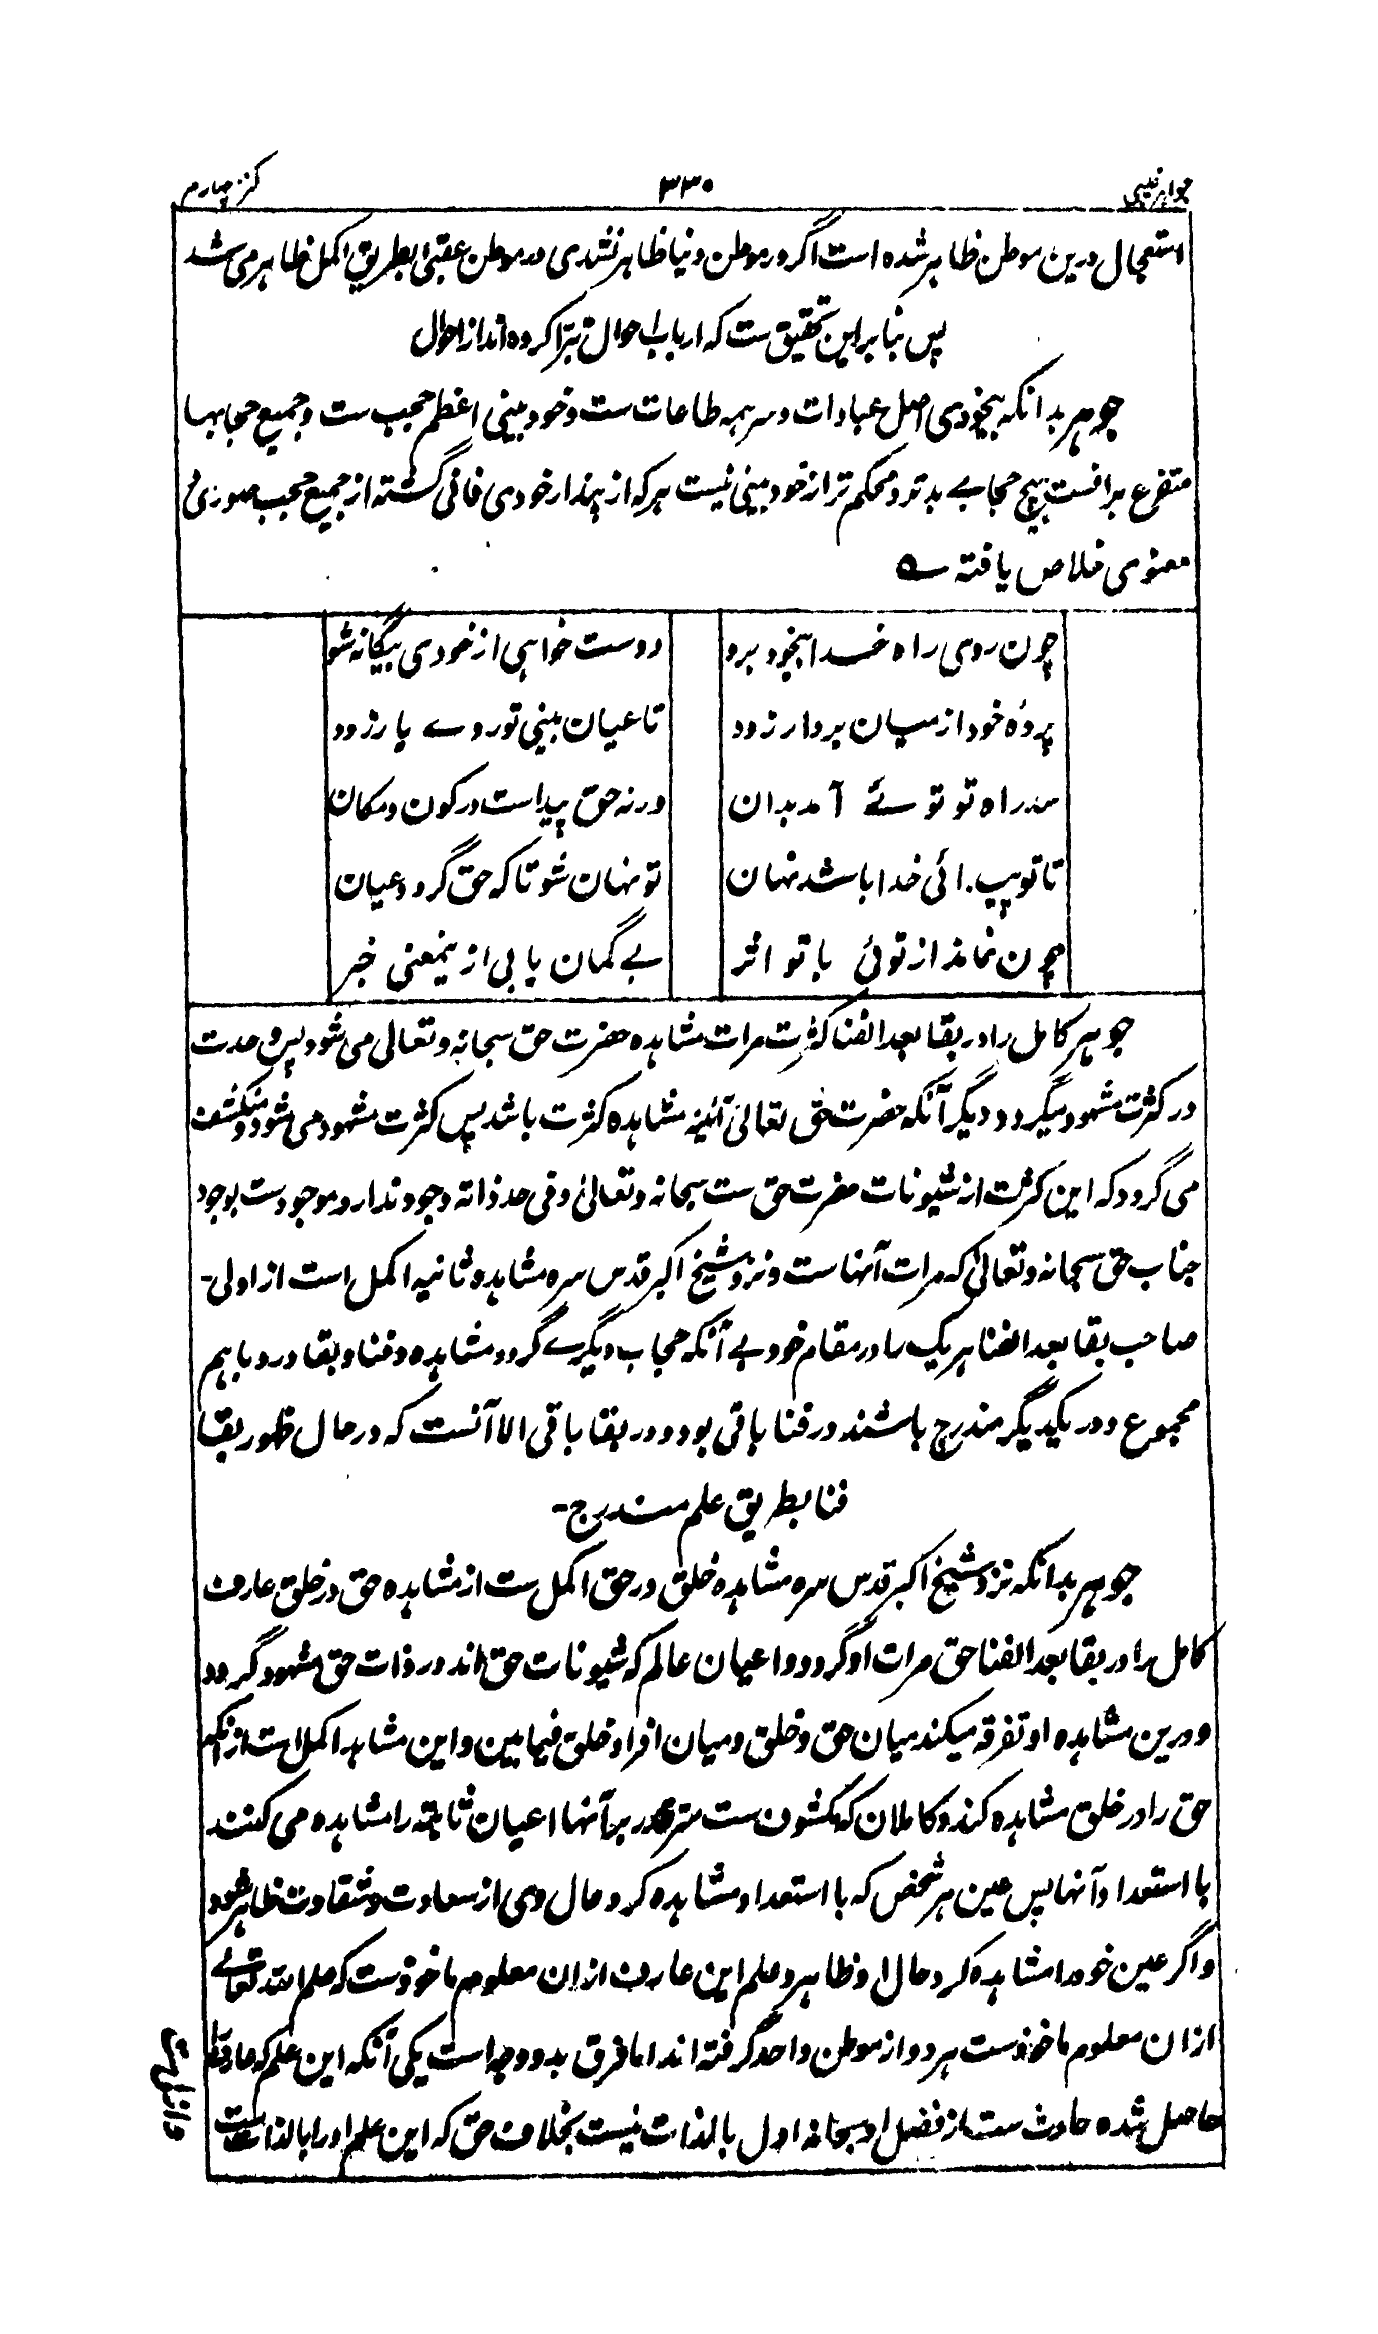 جواهر غیبی ۳۳۰ کنز چهارم
استعجال درین موطن ظاهر شده است اگر در موطن دنیا ظاهر نشدی در موطن عقبی بطریق اکمل ظاهر می شد
پس بنا بر این تحقیق ست که ارباب احوال تبرّا کرده اند از احوال
جوهر بدانکه بیخودی اصل عبادات و سر همه طاعات ست و خود بینی اعظم حجب ست و جمیع حجابها
متفرع بر انست هیچ حجابے بد تر و محکم تر از خود بینی نیست هر که از پندار خودی فانی گشته از جمیع حجب صوری و
معنوی خلاص یافته ؎
چون روی راه خدا بیخود برو دوست خواهی از خودی بیگانه شو
پردهٔ خود از میان بردار زود تا عیان بینی تو روے یار زود
سد راه تو توئے آمد بدان ورنه حق پیداست در کون و مکان
تا تو پیدائی خدا باشد نهان تو نهان شو تا که حق گردد عیان
چون نماند از توئی با تو اثر بے گمان یابی ازینمعنی خبر
جوهر کامل را در بقا بعد الفنا کثرت مرات مشاهده حضرت حق سبحانه و تعالی می شود پس وحدت
در کثرت مشهود میگردد و دیگر آنکه حضرت حق تعالیٰ آئینه مشاهده کثرت باشد پس کثرت مشهود می شود و منکشف
می گردد که این کثرت از شیونات حضرت حق ست سبحانه و تعالیٰ و فی حد ذاته وجود ندارد و موجودست بوجود
جناب حق سبحانه و تعالیٰ که مرات آنهاست و نزد شیخ اکبر قدس سره مشاهده ثانیه اکمل است از اولی-
صاحب بقا بعد الفنا هر یک را در مقام خود بے آنکه حجاب دیگرے گردد مشاهده و فنا و بقا در و باهم
مجموع و در یکدیگر مندرج باشند در فنا باقی بود و در بقا باقی الا آنست که در حال ظهور بقا
فنا بطریق علم مندرج-
جوهر بدانکه نزد شیخ اکبر قدس سره مشاهده خلق در حق اکمل ست از مشاهده حق در خلق عارف
کامل را در بقا بعد الفنا حق مرات او گردد و اعیان عالم که شیونات حق اند در ذات حق مشهود گردد
و درین مشاهده او تفرقه میکند میان حق و خلق و میان افراد خلق فیما بین و این مشاهد اکمل است ازانکه
حق را در خلق مشاهده کند و کاملان که مکشوف ست سر قدر بر آنها اعیان ثابته را مشاهده می کنند
با استعداد آنها پس عین هر شخص که با استعداد مشاهده کرد حال وی از سعادت و شقاوت ظاهر شود
و اگر عین خود را مشاهده کرد حال او ظاهر و علم این عارف ازان معلوم ماخوذست که علم الله تعالے
ازان معلوم ماخوذست هر دو از موطن واحد گرفته اند اما فرق بدو وجه است یکی آنکه این علم که عارف را
حاصل شده حادث ست از فضل او سبحانه اول بالذات نیست بخلاف حق که این علم او را بالذات ست